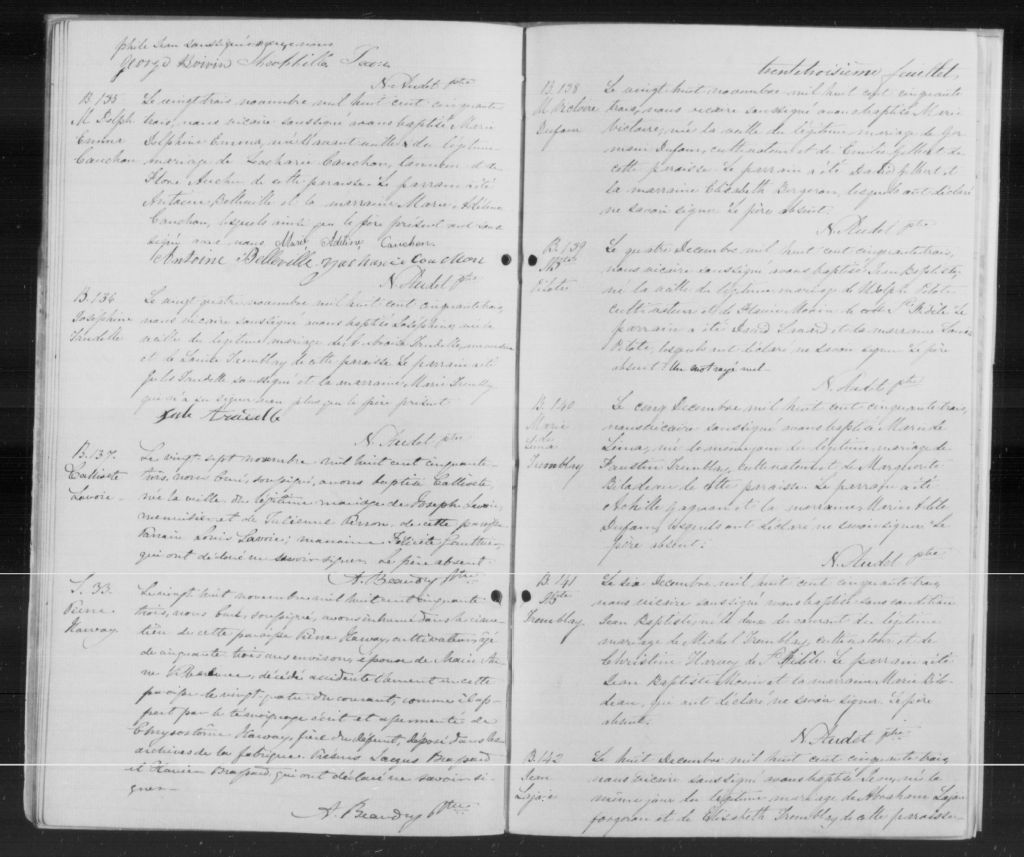 phile Jean soussignés avec nous
George Boivin Theophille Jean
N. Audet ptre
B. 135 Le vingt trois novembre mil huit cent cinquante
M. Delph trois, nous vicaire soussigné avons baptisé Marie
Emma Delphine Emma, née l'avant veille du légitime
Cauchon mariage de Zacharie Cauchon, et de
de cette paroisse. Le parrain a été
Antoine Belleville et la marraine Marie
Cauchon, lesquels ainsi que le père présent ont sous
signé avec nous Marie Cauchon
Antoine Belleville Zacharie Cauchon
N. Audet ptre
B. 136 Le vingt quatre novembre mil huit cent cinquante trois,
Joséphine nous vicaire soussigné avons baptisé Joséphine, née la
Trudelle veille du légitime mariage de Trudelle,
et de Tremblay de cette paroisse. Le parrain a été
Jules Trudelle soussigné et la marraine Marie Tremblay
qui n'a su signer non plus que le père présent
Jule Trudelle
N. Audet ptre
B. 137. Le vingt sept novembre mil huit cent cinquante-
Calliste trois, nous Curé, soussigné, avons baptisé Calliste,
Lavoie. née la veille du légitime mariage de Joseph Lavoie,
menuisier et de Julienne Perron, de cette paroisse
Parrain Louis Lavoie; marraine Félicité Gauthier,
qui ont déclaré ne savoir signer. Le père absent.
A. Beaudry Ptre
S. 33. Le vingt huit novembre mil huit cent cinquante-
Pierre trois, nous Curé, soussigné, avons inhumé dans le cime-
Harvay. tière de cette paroisse Pierre Harvay, cultivateur, âgé
de cinquante trois ans environ, époux de Marie An-
ne décédé accidentellement en cette
paroisse le vingt-quatre du courant, comme il ap-
pert par le témoignage écrit et de
Chrysostôme Harvay, frère du défunt, déposé dans les
archives de la fabrique. Présens Jacques Brassard
et Brassard qui ont déclaré ne savoir si-
gner.
A. Beaudry Ptre
trente troisième feuillet.
B. 138 Le vingt huit novembre mil huit cent cinquante
M. Victoire trois, nous vicaire soussigné avons baptisé Marie
Dufour Victoire, née la veille du légitime mariage de Ger
main Dufour, cultivateur et de Emilie Gilbert de
cette paroisse. Le parrain a été David Gilbert et
la marraine Elisabeth Bergeron, lesquels ont déclaré
ne savoir signer. Le père absent.
N. Audet ptre
B. 139 Le quatre Decembre mil huit cent cinquante trois,
J Bte nous vicaire soussigné avons baptisé Jean Baptiste,
Pilote né la veille du légitime mariage de Pilote
cultivateur et de Morin de Ste Fidèle. Le
parrain a été David et la marraine Louise
Pilote, lesquels ont déclaré ne savoir signer. Le père
absent. Un mot rayé nul.
N. Audet ptre
B. 140 Le cinq Decembre mil huit cent cinquante trois,
Marie nous vicaire soussigné avons baptisé Marie de
de Lima Lima, née le même jour du légitime mariage de
Tremblay Faustin Tremblay, cultivateur et de Marguerite
de cette paroisse. Le parrain a été
Achille Gagnon et la marraine Marie
Dufour, lesquels ont déclaré ne savoir signer. Le
père absent.
N. Audet ptre
B. 141 Le six Decembre mil huit cent cinquante trois,
J Bte nous vicaire soussigné avons baptisé sous condition
Tremblay Jean Baptiste, né le deux du courant du légitime
mariage de Michel Tremblay, cultivateur et de
Christine Harvey de St Fidèle. Le parrain a été
Jean Baptiste Morin et la marraine Marie
qui ont déclaré ne savoir signer. Le père
absent.
N. Audet ptre
B. 142 Le huit Decembre mil huit cent cinquante trois,
Jean nous vicaire soussigné avons baptisé Jean, né le
Lajoie même jour du légitime mariage de Abraham Lajoie
forgeron et de Elisabeth Tremblay de cette paroisse.